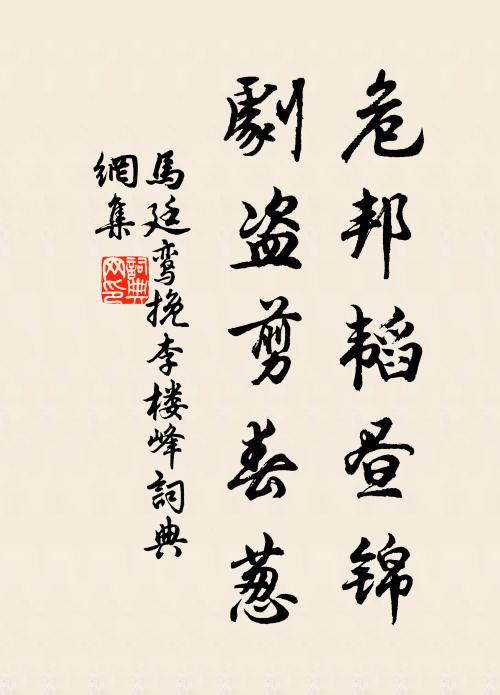 危邦韬昼锦
劇盗剪春葱
馬廷鸾挽李楼峰詞典
網集
詞典網印